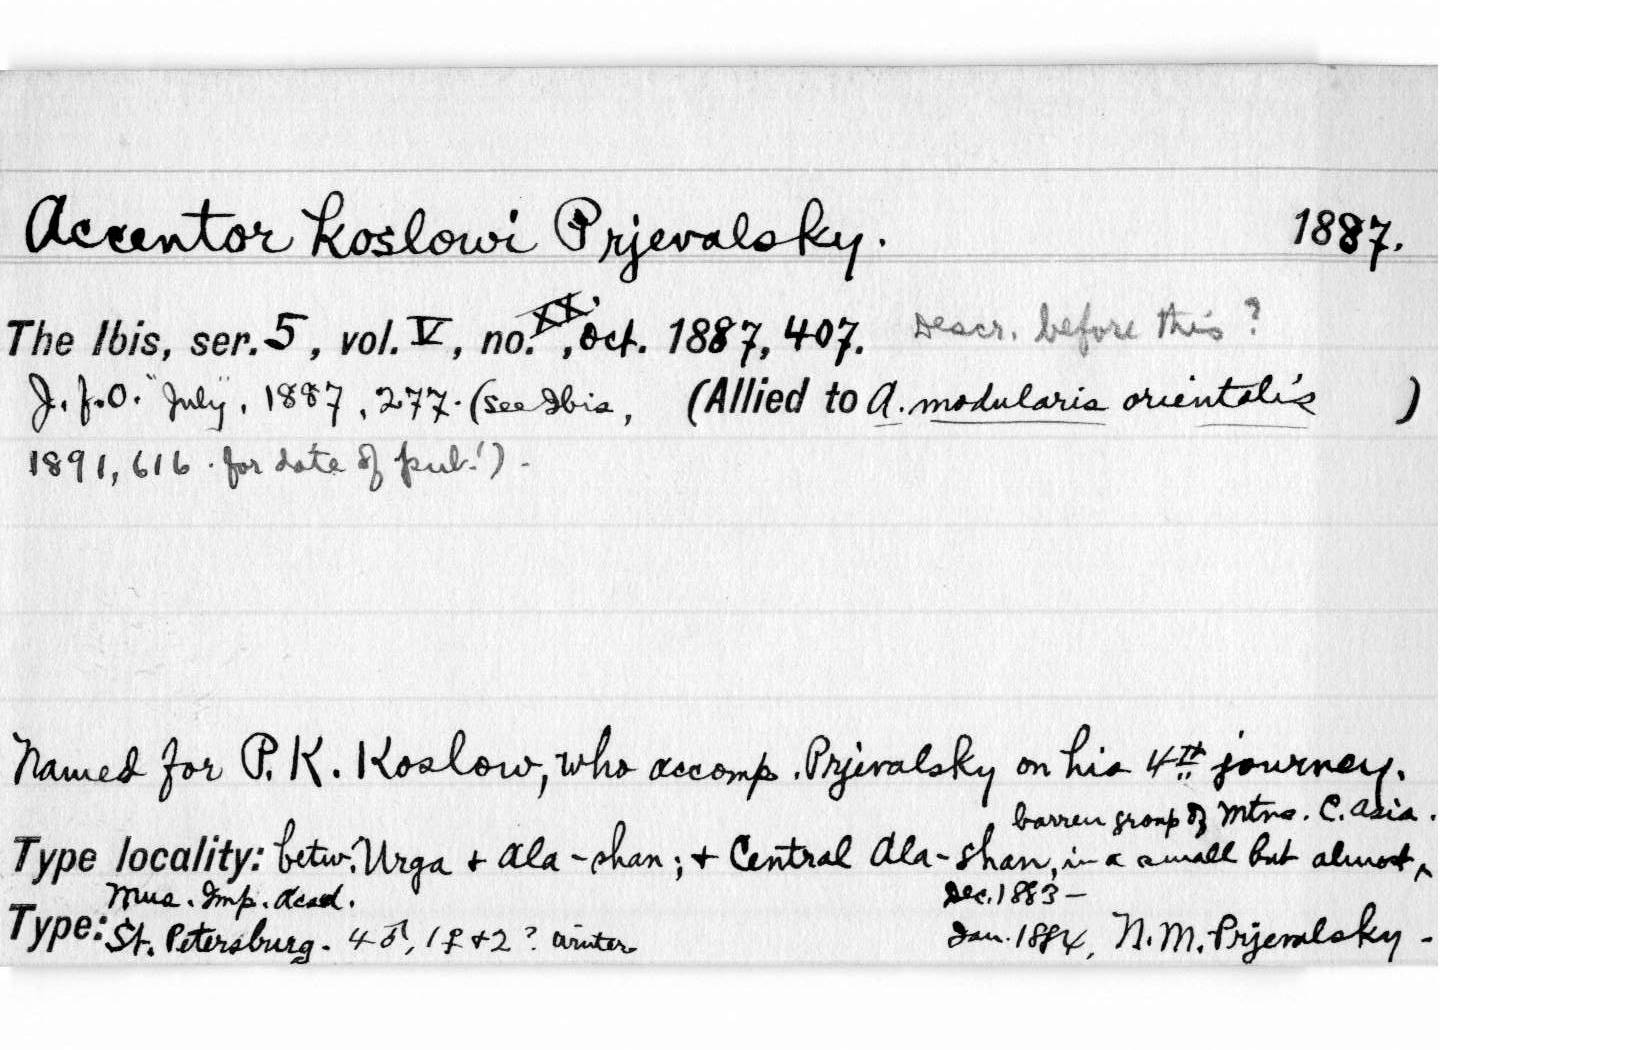 Accentor koslowi Prjevalsky. 1887.
The Ibis, ser. 5, vol. V, no. XX, Oct. 1887, 407. Descr. before this?
J.f.O. "July", 1887, 277. (see Ibis, (Allied to A. modularis orientalis )
1891, 616. for date of pub.!) -
Named for P. K. Koslow, who accomp. Prjevalsky on his 4th journey.
barren group of Mtns. C. Asia.
Type locality: betw. Urga + Ala-shan; + Central Ala-shan, in a small but almost ^
Mus. Imp. Acad. Dec. 1883 –
Type: St. Petersburg. 4 ♂, 1 ♀ + 2 ? winter Jan. 1884, N. M. Prjevalsky -